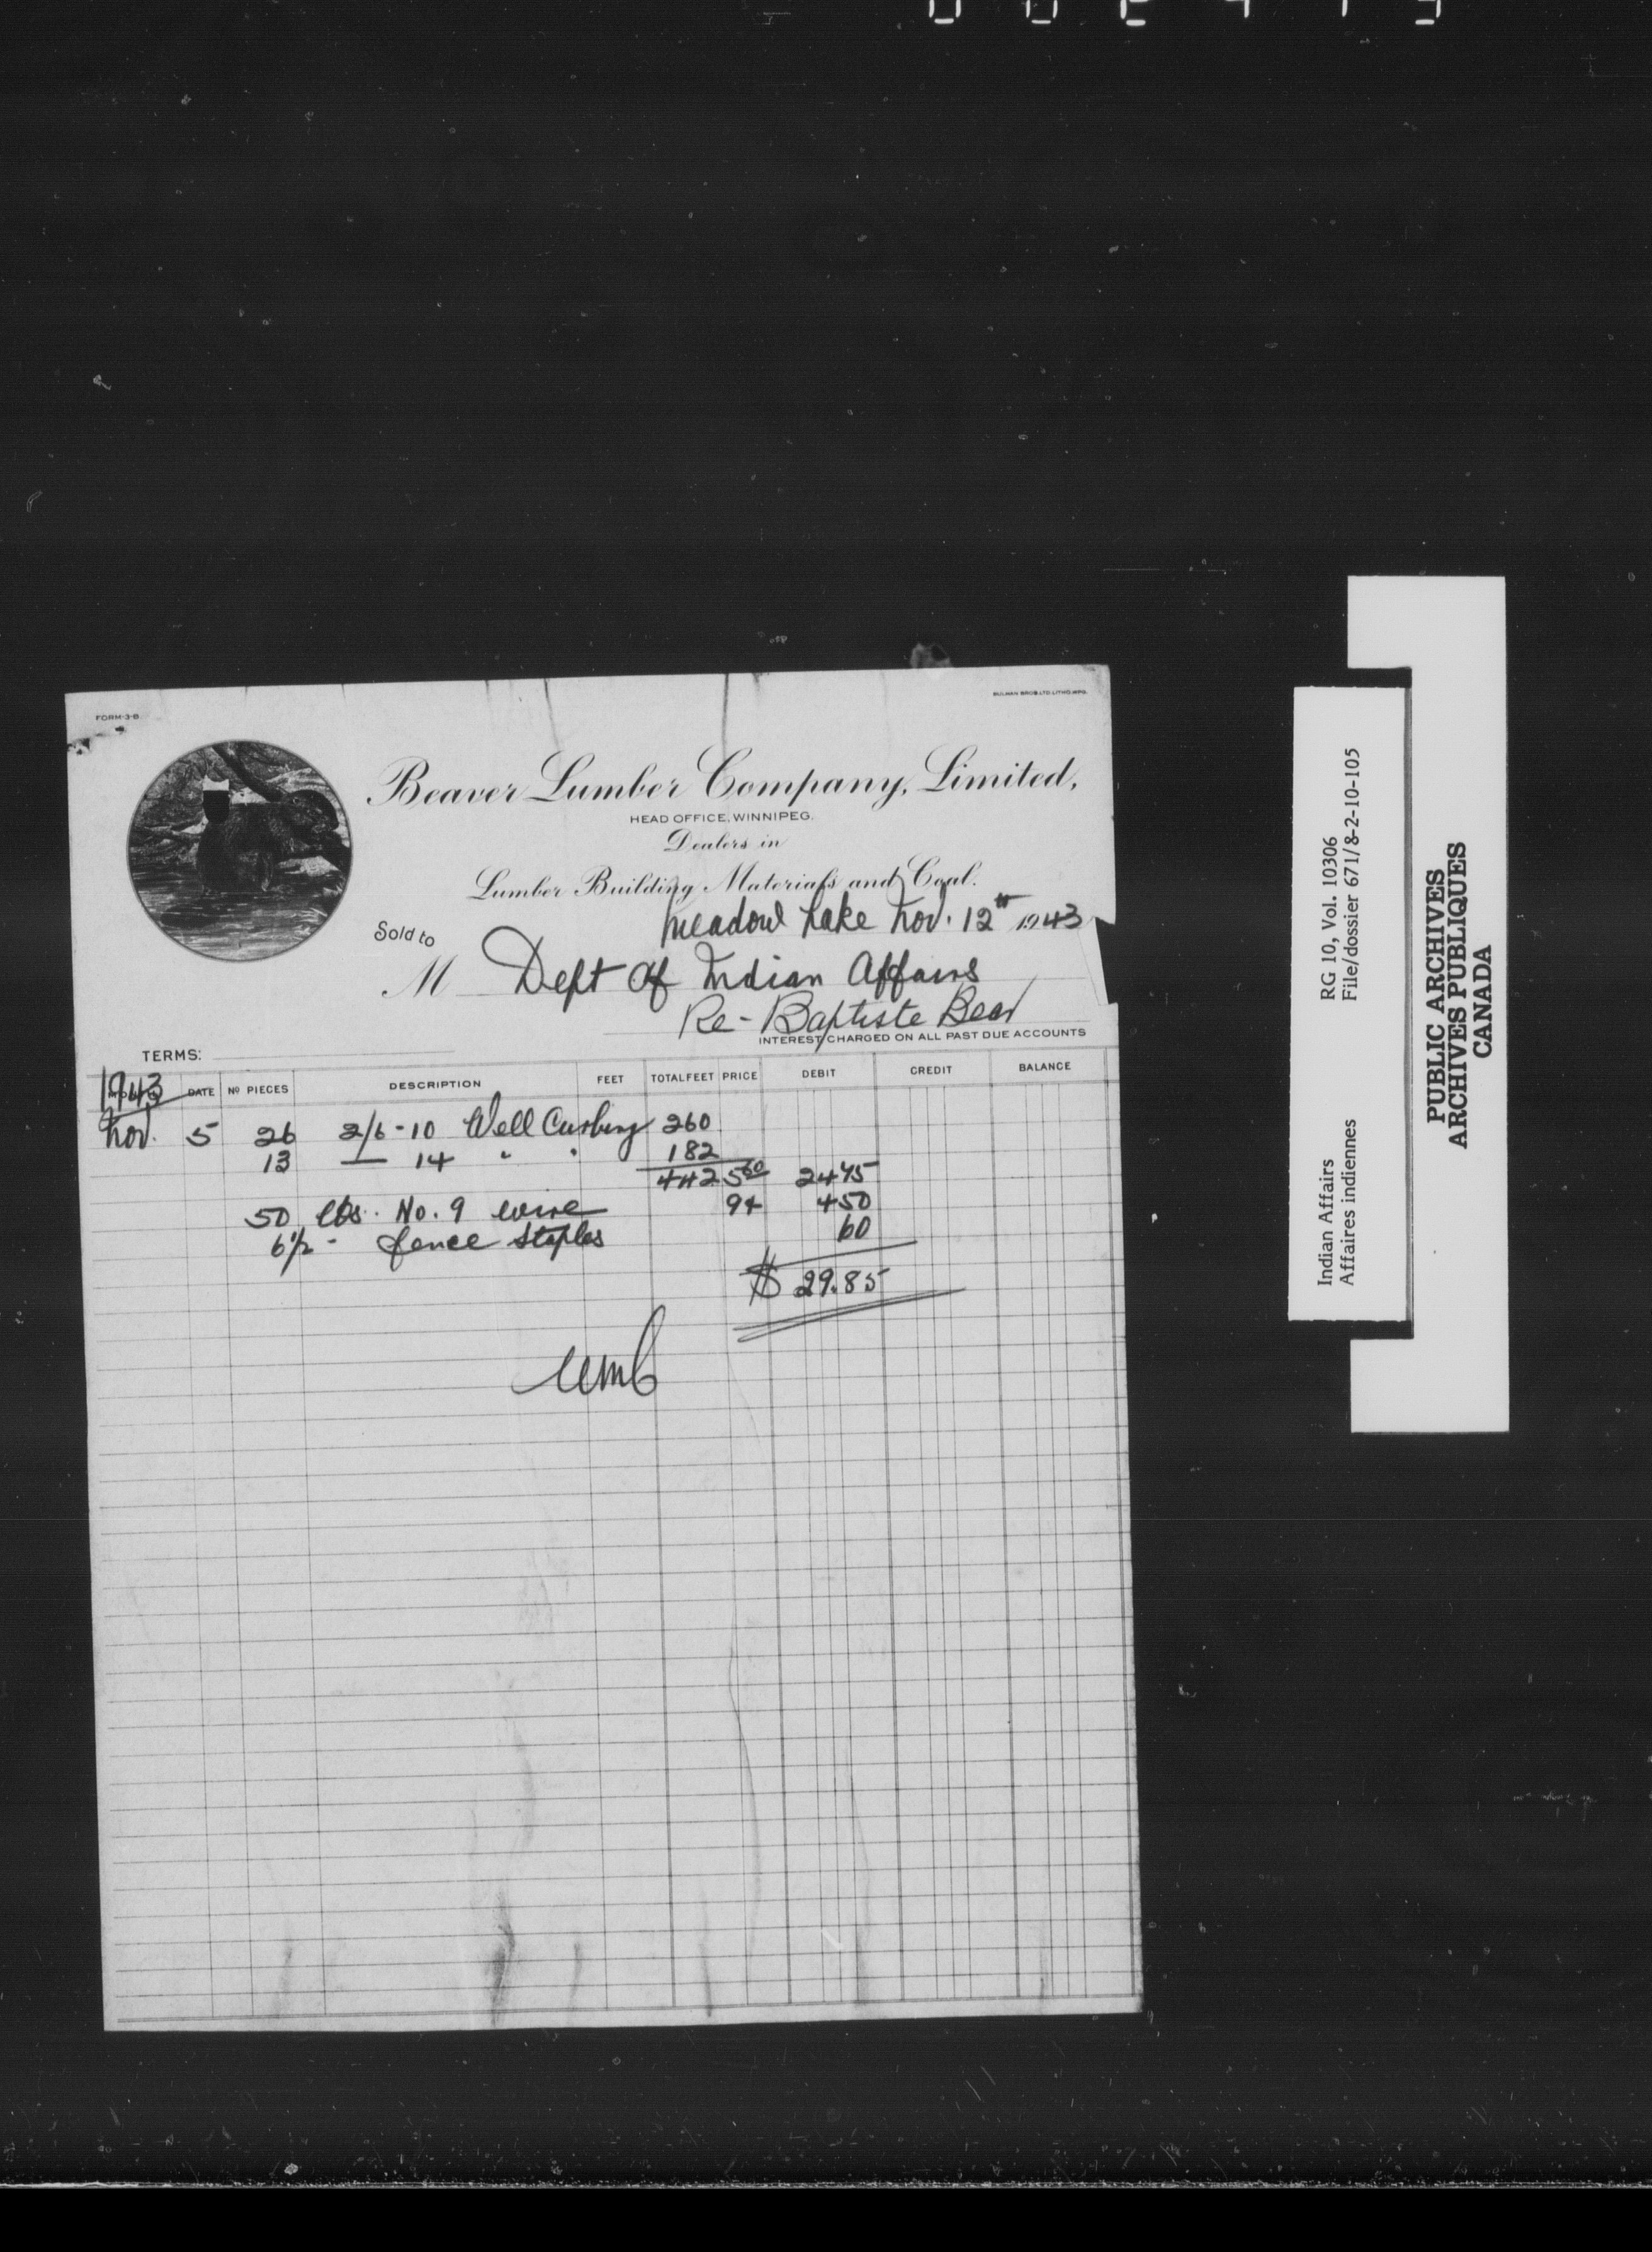 FORM-3-B
BULMAN BROS. LTD. LITHO. WPG.
Beaver Lumber Company, Limited,
HEAD OFFICE, WINNIPEG.
Dealers in
Lumber Building Materials and Coal.
Meadow Lake Nov. 12th 1943
Sold to
M Dept of Indian Affairs
Re- Baptiste Bear
INTEREST CHARGED ON ALL PAST DUE ACCOUNTS
TERMS:
1943 DATE Nº PIECES DESCRIPTION FEET TOTAL FEET PRICE DEBIT CREDIT BALANCE
Nov. 5 26 2/6-10 Well Curbing 260
13 — 14 " " 182
442 5 60 24 75
50 lbs. No. 9 wire 9¢ 4 50
6 1/2 - fence staples 60
$ 29.85
RG 10, Vol. 10306
File/dossier 671/8-2-10-105
Indian Affairs
Affaires indiennes
PUBLIC ARCHIVES
ARCHIVES PUBLIQUES
CANADA